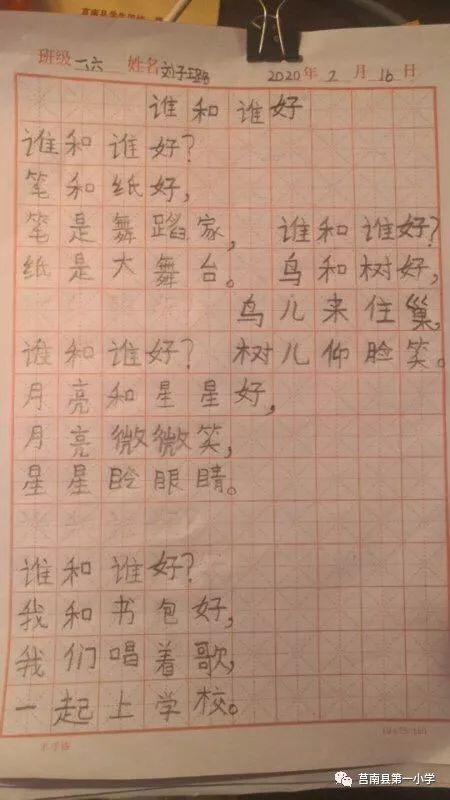 班级 一六 姓名 刘子 2020年 2月16日
谁和谁好
谁和谁好?
笔和纸好,
笔是舞蹈家,
纸是大舞台。
谁和谁好?
鸟和树好,
鸟儿来住巢。
树儿仰脸笑。
谁和谁好?
月亮和星星好,
月亮微微笑,
星星眨眼睛。
谁和谁好?
我和书包好,
我们唱着歌,
一起上学校。
莒南县第一小学